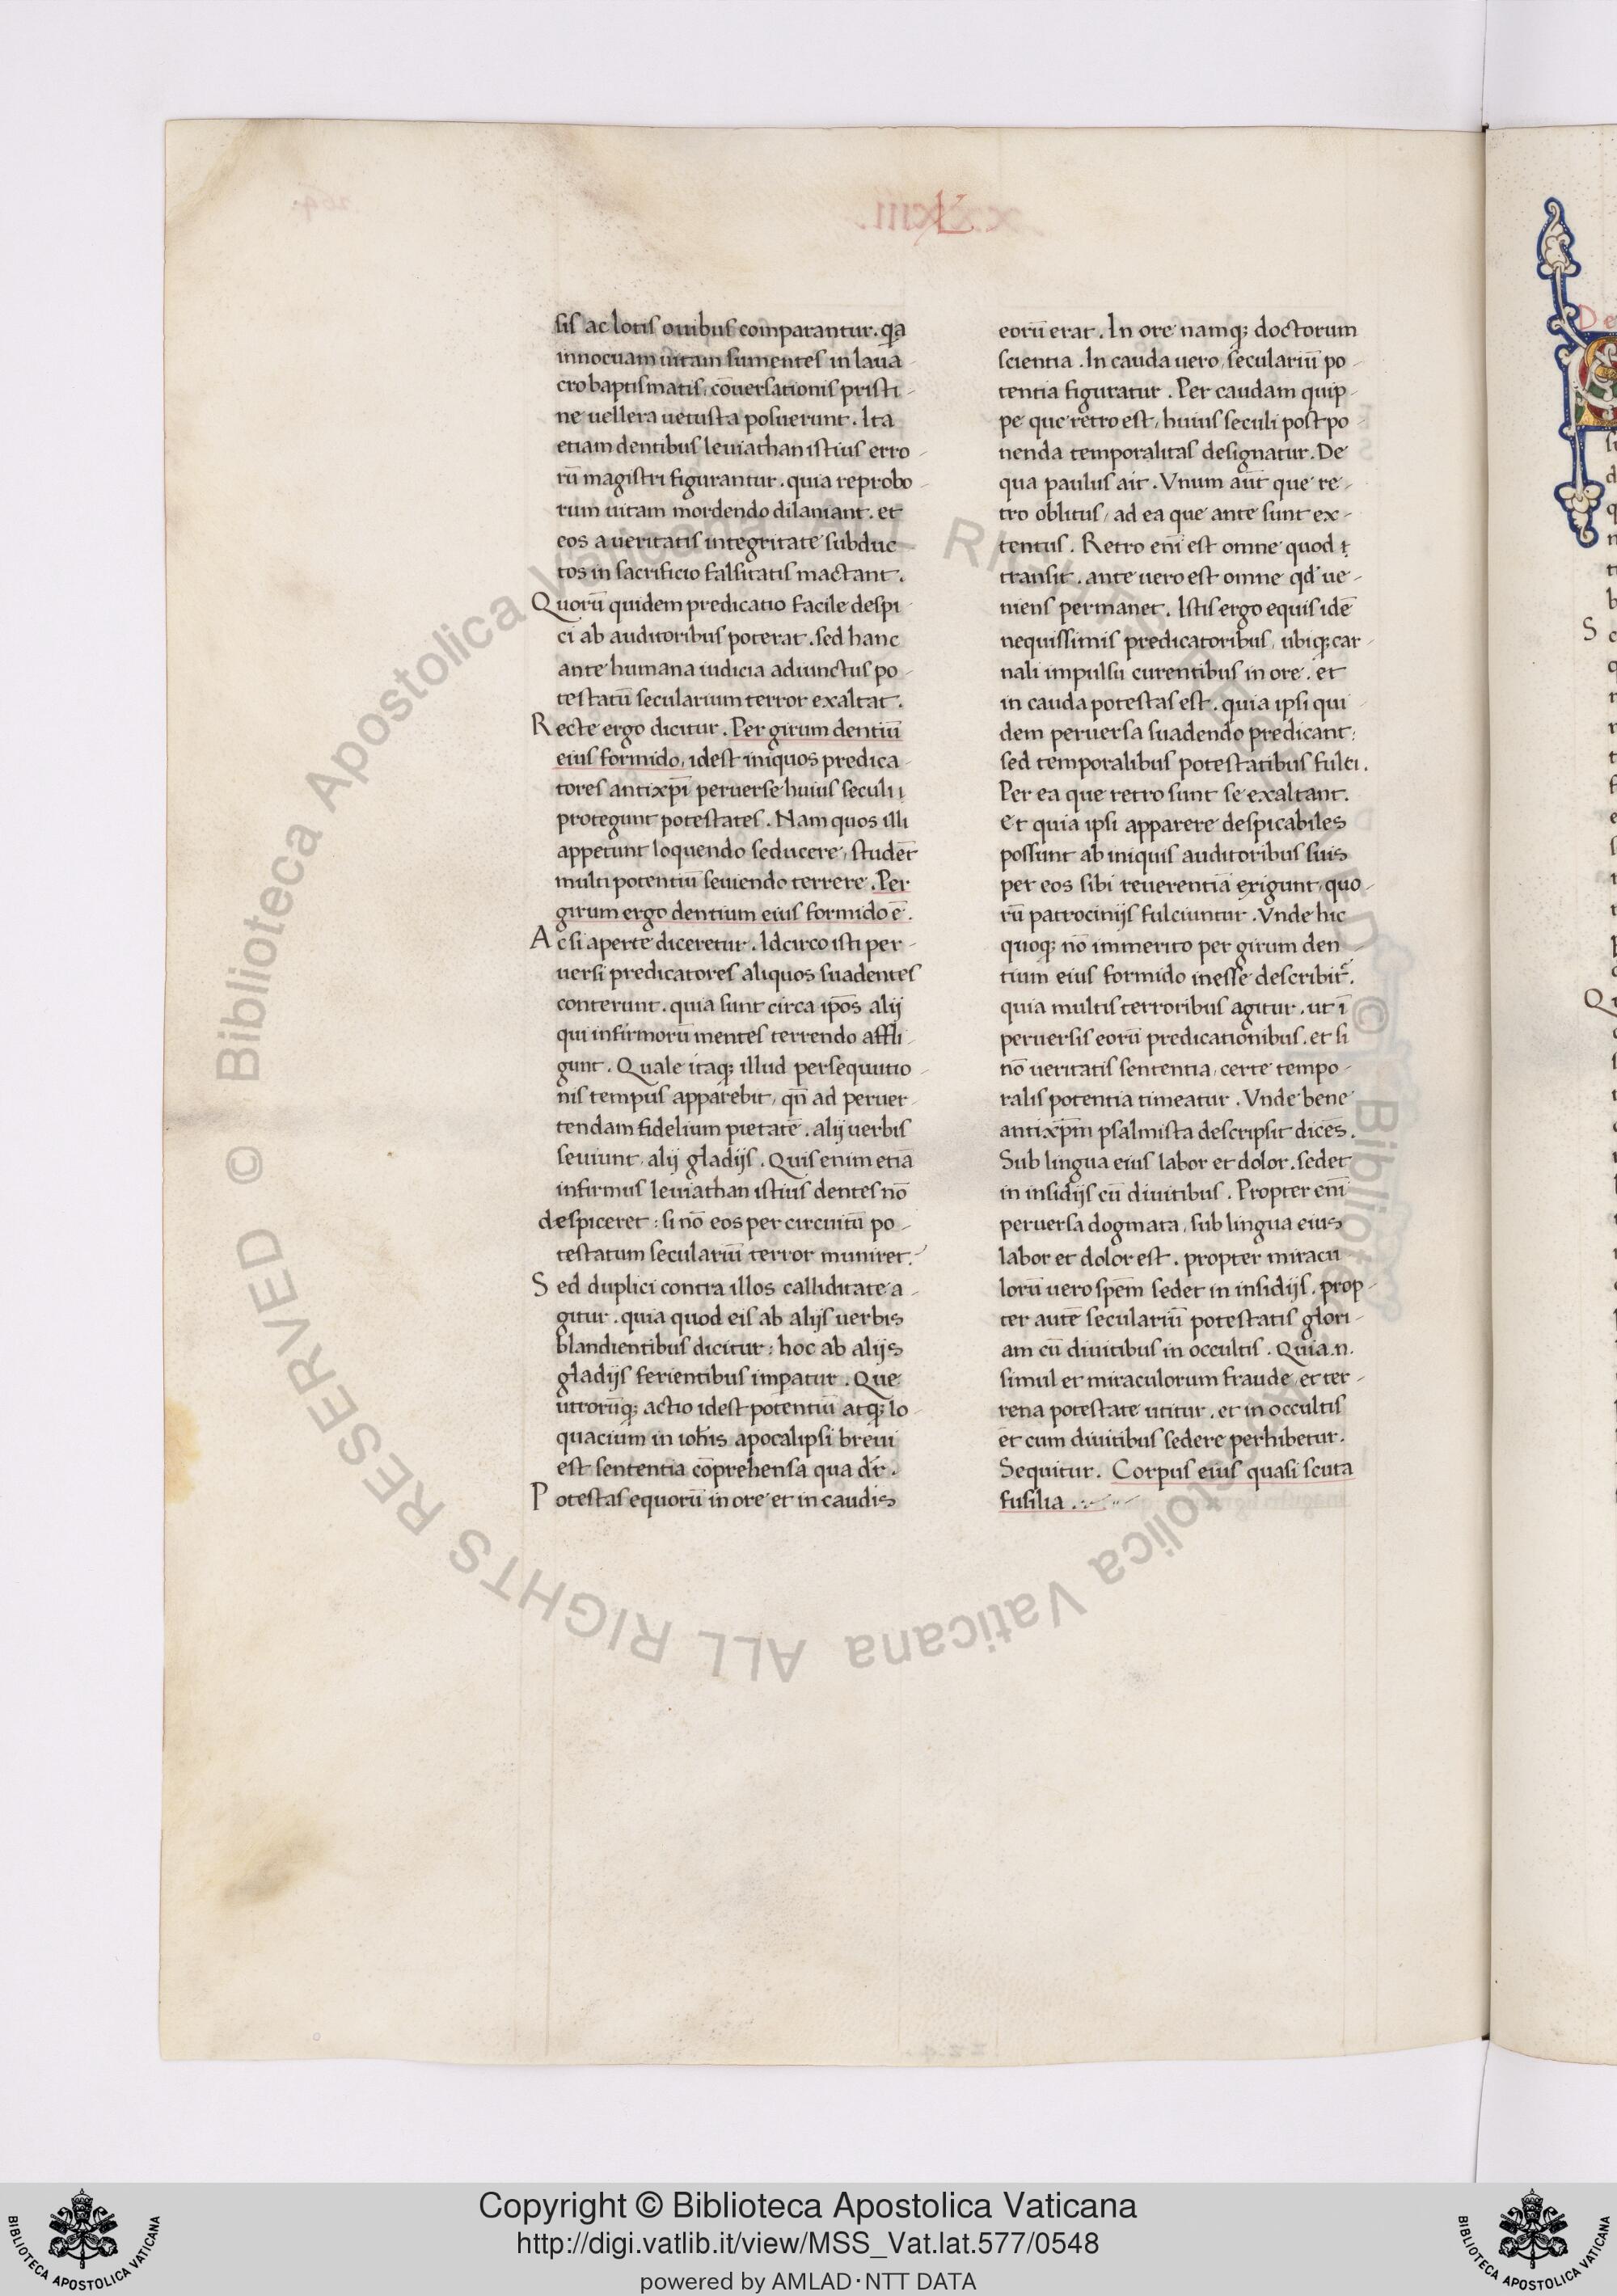 L
sis ac lotis ouibus comparantur. qa
innocuam uitam sumentes in laua
cro baptismatis, cōuersationis pristi
ne uellera uetusta posuerunt. Ita
etiam dentibus leuiathan istius erro
rū magistri figurantur. quia reprobo
rum uitam mordendo dilaniant. et
eos a ueritatis integritate subduc
tos in sacrificio falsitatis mactant.
Quorū quidem predicatio facile despi
ci ab auditoribus poterat. sed hanc
ante humana iudicia adiunctus po
testatū secularium terror exaltat.
Recte ergo dicitur. Per girum dentiū
eius formido, idest iniquos predica
tores antixp̄i peruerse huius seculi
protegunt potestates. Nam quos illi
appetunt loquendo seducere, studēt
multi potentiū seuiendo terrere. Per
girum ergo dentium eius formido ē.
Ac si aperte diceretur. Idcirco isti per
uersi predicatores aliquos suadentes
conterunt. quia sunt circa ip̄os alij
qui infirmorū mentes terrendo affli
gunt. Quale itaq; illud persequutio
nis tempus apparebit, qn̄ ad peruer
tendam fidelium pietatē. alij uerbis
seuiunt, alij gladijs. Quis enim etiā
infirmus leuiathan istius dentes nō
despiceret: si nō eos per circuitū po
testatum seculariū terror muniret?
Sed duplici contra illos calliditate a
gitur. quia quod eis ab alijs uerbis
blandientibus dicitur: hoc ab alijs
gladijs ferientibus impatur. Que
utrorūq; actio idest potentiū atq; lo
quacium in ioh̄is apocalipsi breui
est sententia cōprehensa qua dr̄.
Potestas equorū in ore et in caudis
eorū erat. In ore namq; doctorum
scientia. In cauda uero, seculariū po
tentia figuratur. Per caudam quip
pe que retro est, huius seculi postpo
nenda temporalitas designatur. De
qua paulus ait. Vnum aūt que re
tro oblitus, ad ea que ante sunt ex
tentus. Retro eni̅ est omne quod t
transit. ante uero est omne qd ue
niens permanet. Istis ergo equis idē
nequissimis predicatoribus, ubiq; car
nali impulsu curentibus in ore. et
in cauda potestas est. quia ipsi qui
dem peruersa suadendo predicant:
sed temporalibus potestatibus fulti.
Per ea que retro sunt se exaltant.
Et quia ipsi apparere despicabiles
possunt ab iniquis auditoribus suis
per eos sibi reuerentiā exigunt, quo
rū patrocinijs fulciuntur. Vnde hic
quoq; nō immerito per girum den
tium eius formido inesse describit̄.
quia multis terroribus agitur. ut ī
peruersis eorū predicationibus. et si
nō ueritatis sententia, certe tempo
ralis potentia timeatur. Vnde bene
antixp̄m psalmista descripsit dicēs.
Sub lingua eius labor et dolor. sedet
in insidijs cū diuitibus. Propter eni̅
peruersa dogmata, sub lingua eius
labor et dolor est. propter miracu
lorū uero spēm sedet in insidijs. prop
ter autē seculariū potestatis glori
am cū diuitibus in occultis. Quia .n.
simul et miraculorum fraude, et ter
rena potestate utitur. et in occultis
et cum diuitibus sedere perhibetur.
Sequitur. Corpus eius quasi scuta
fusilia.
© Biblioteca Apostolica Vaticana ALL RIGHTS RESERVED
Copyright © Biblioteca Apostolica Vaticana
http://digi.vatlib.it/view/MSS_Vat.lat.577/0548
powered by AMLAD·NTT DATA
BIBLIOTECA APOSTOLICA VATICANA
BIBLIOTECA APOSTOLICA VATICANA